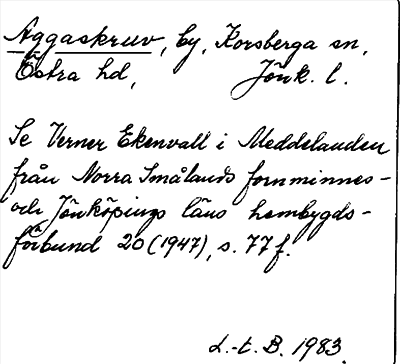 Äggaskruv, by, Korsberga sn,
Östra hd, Jönk. l.
Se Verner Ekenvall i Meddelanden
från Norra Smålands fornminnes-
och Jönköpings läns hembygds-
förbund 20 (1947), s. 77 f.
L.-t. B. 1983.